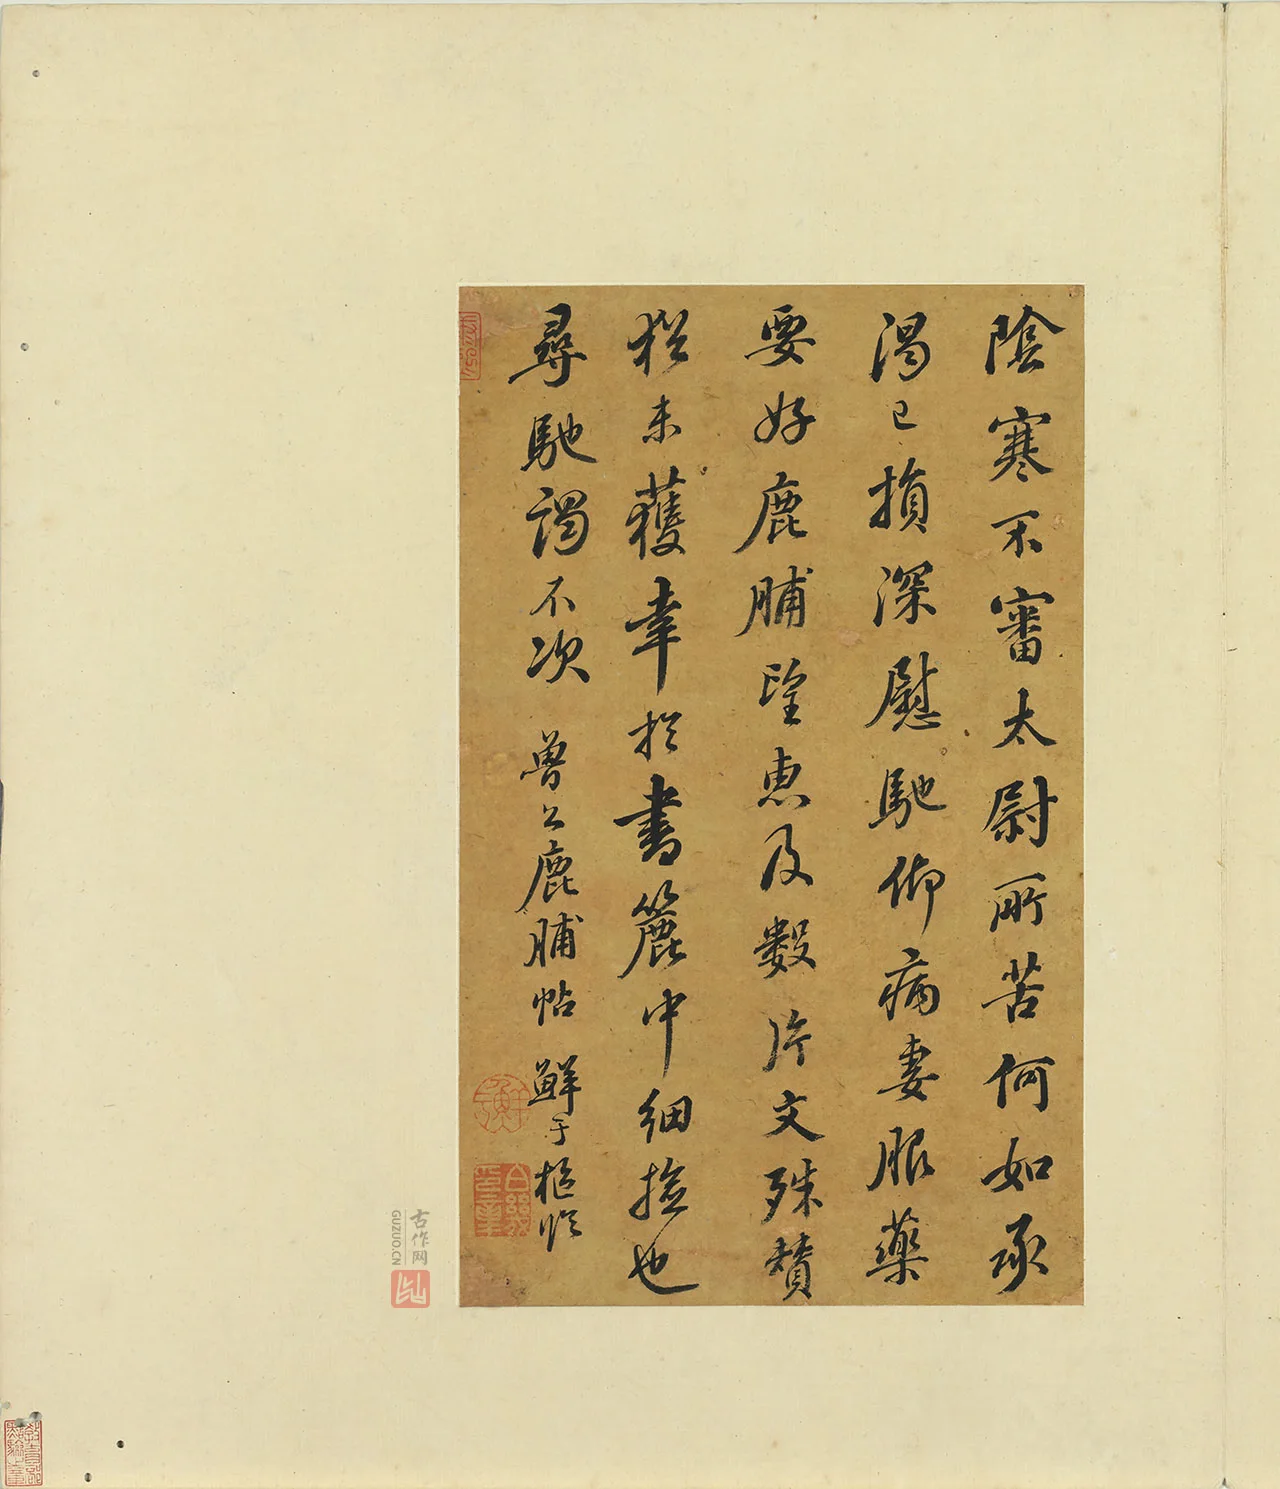 陰寒不審太尉所苦何如承
渴已損深慰馳仰病妻服藥
要好鹿脯望惠及數片文殊贊
猶未獲幸於書簏中細撿也
尋馳謁不次 魯公鹿脯帖 鮮于樞臨
古作网
GUZUO.CN